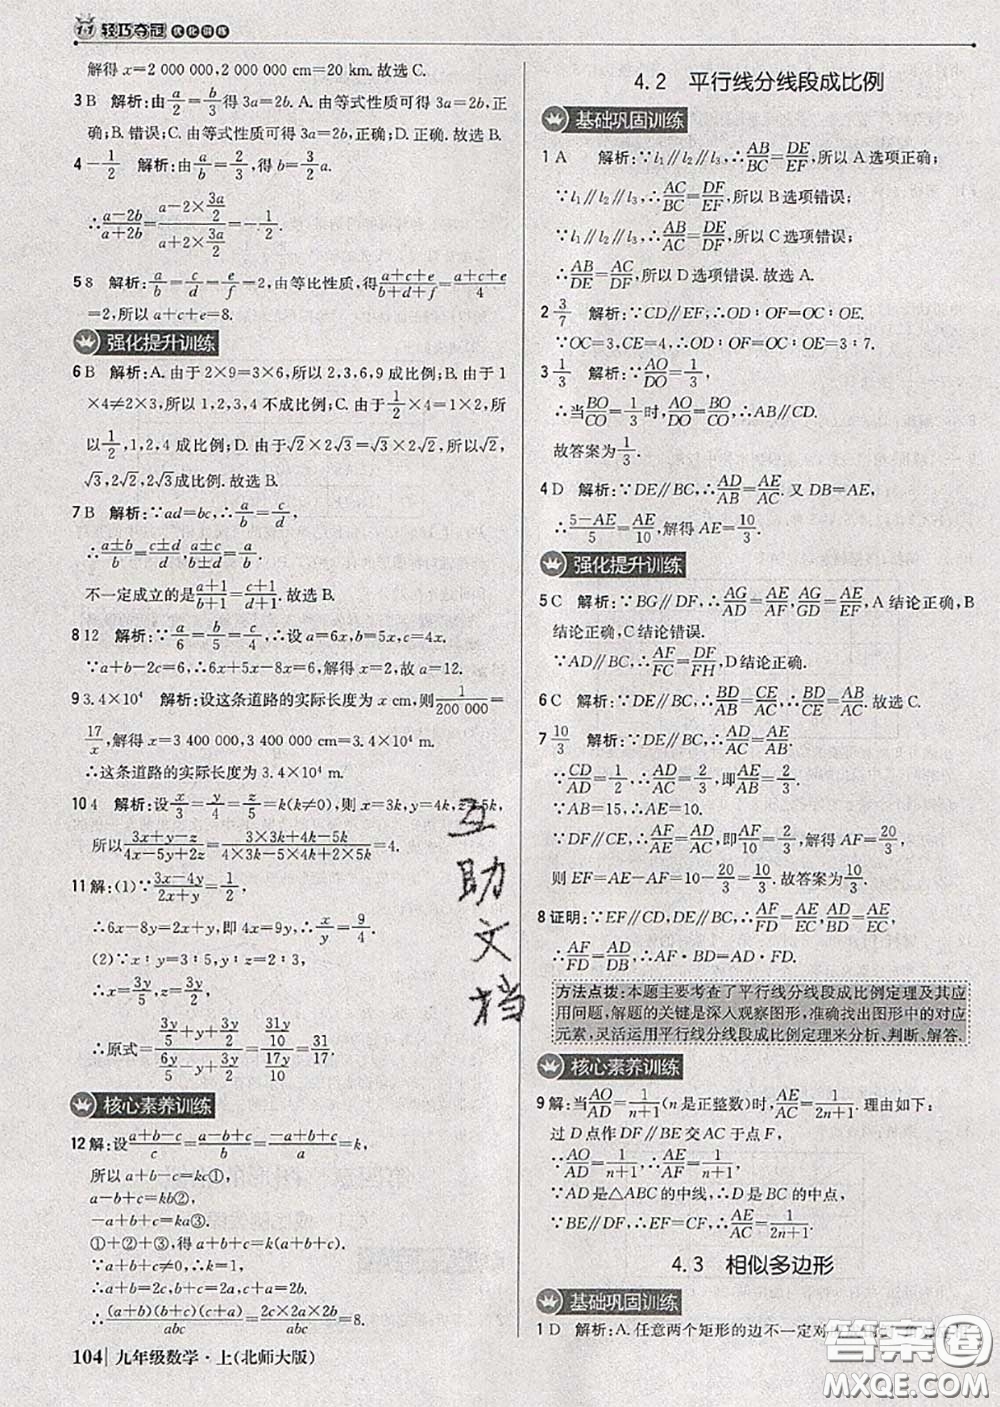 1+1 轻巧夺冠 优化训练
解得 x=2 000 000,2 000 000 cm=20 km.故选 C.
3 B 解析:由a/2=b/3得 3a=2b. A. 由等式性质可得 3a=2b,
正确;B. 错误;C. 由等式性质可得 3a=2b,正确;D. 正确.故选 B.
4 -1/2 解析:由a/b=2/3,得 b=3/2a.
∴(a-2b)/(a+2b)=(a-2×3a/2)/(a+2×3a/2)=-1/2.
5 8 解析:a/b=c/d=e/f=2,由等比性质,得(a+c+e)/(b+d+f)=(a+c+e)/4
=2,所以 a+c+e=8.
强化提升训练
6 B 解析:A. 由于 2×9=3×6,所以 2,3,6,9 成比例;B. 由于 1
×4≠2×3,所以 1,2,3,4 不成比例;C. 由于1/2×4=1×2,所
以1/2,1,2,4 成比例;D. 由于√2×2√3=√3×2√2,所以√2,
√3,2√2,2√3成比例.故选 B.
7 B 解析:∵ad=bc,∴a/b=c/d,
∴(a±b)/b=(c±d)/d,(a±c)/(b±d)=a/b.
不一定成立的是(a+1)/(b+1)=(c+1)/(d+1).故选 B.
8 12 解析:∵a/6=b/5=c/4,∴设 a=6x,b=5x,c=4x,
∵a+b-2c=6,∴6x+5x-8x=6,解得 x=2,故 a=12.
9 3.4×10⁴ 解析:设这条道路的实际长度为 x cm,则1/200 000=
17/x,解得 x=3 400 000,3 400 000 cm=3.4×10⁴ m.
∴这条道路的实际长度为 3.4×10⁴ m.
10 4 解析:设x/3=y/4=z/5=k(k≠0),则 x=3k,y=4k,z=5k,
所以(3x+y-z)/(4x-5y+2z)=(3×3k+4k-5k)/(4×3k-5×4k+2×5k)=4.
11 解:(1)∵(3x-4y)/(2x+y)=1/2,
∴6x-8y=2x+y,即 4x=9y,∴x/y=9/4.
(2)∵x:y=3:5,y:z=2:3,
∴x=3y/5,z=3y/2,
∴原式=(3y/5+y+3y/2)/(6y/5-y+3y/2)=(31y/10)/(17y/10)=31/17.
核心素养训练
12 解:设(a+b-c)/c=(a-b+c)/b=(-a+b+c)/a=k,
所以 a+b-c=kc①,
a-b+c=kb②,
-a+b+c=ka③.
①+②+③,得 a+b+c=k(a+b+c).
∵a+b+c≠0,∴k=1,
∴a+b=2c,b+c=2a,c+a=2b.
∴((a+b)(b+c)(c+a))/abc=(2c×2a×2b)/abc=8.
104 九年级数学·上(北师大版)
4.2 平行线分线段成比例
基础巩固训练
1 A 解析:∵l₁∥l₂∥l₃,∴AB/BC=DE/EF,所以 A 选项正确;
∵l₁∥l₂∥l₃,∴AC/BC=DF/EF,所以 B 选项错误;
∵l₁∥l₂∥l₃,∴AC/AB=DF/DE,所以 C 选项错误;
∴AB/DE=BC/EF,所以 D 选项错误.故选 A.
2 3/7 解析:∵CD∥EF,∴OD:OF=OC:OE.
∵OC=3,CE=4,∴OD:OF=3/7.
3 1/3 解析:∵AO/DO=1/3,
∴当BO/CO=1/3时,AO/DO=BO/CO,∴AB∥CD.
故答案为1/3.
4 D 解析:∵DE∥BC,∴AD/AB=AE/AC.又 DB=AE,
∴(5-AE)/5=AE/10,解得 AE=10/3.
强化提升训练
5 C 解析:∵BG∥DF,∴AG/AD=AE/AF,AG/GD=AE/EF,A 结论正确,B
结论正确,C 结论错误.
∵AD∥BC,∴AF/FC=DF/FH,D 结论正确.
6 C 解析:∵DE∥BC,∴BD/AB=CE/AC,∴BD/CE=AB/AC.故选 C.
7 10/3 解析:∵DE∥BC,∴AD/AC=AE/AB.
∵CD/AD=1/2,∴AD/AC=2/3,即AE/AB=2/3.
∵AB=15,∴AE=10.
∵DF∥CE,∴AF/AE=AD/AC,即AF/10=2/3,解得 AF=20/3,
则 EF=AE-AF=10-20/3=10/3.故答案为10/3.
8 证明:∵EF∥CD,DE∥BC,∴AF/FD=AE/EC,AD/DB=AE/EC,
∴AF/FD=AD/DB,∴AF·BD=AD·FD.
方法点拨:本题主要考查了平行线分线段成比例定理及其应
用问题,解题的关键是深入观察图形,准确找出图形中的对应
元素,灵活运用平行线分线段成比例定理来分析、判断、解答.
核心素养训练
9 解:当AO/AD=1/(n+1)(n 是正整数)时,AE/AC=1/(2n+1).理由如下:
过 D 点作 DF∥BE 交 AC 于点 F,
∵AO/AD=1/(n+1),∴AE/AF=1/(n+1),∴AE/EF=1/n.
∵AD 是△ABC 的中线,∴D 是 BC 的中点,
∵BE∥DF,∴EF=CF,∴AE/AC=1/(2n+1).
4.3 相似多边形
基础巩固训练
1 D 解析:A. 任意两个矩形的边不一定对
互助文档
答案卷
MXQE.COM